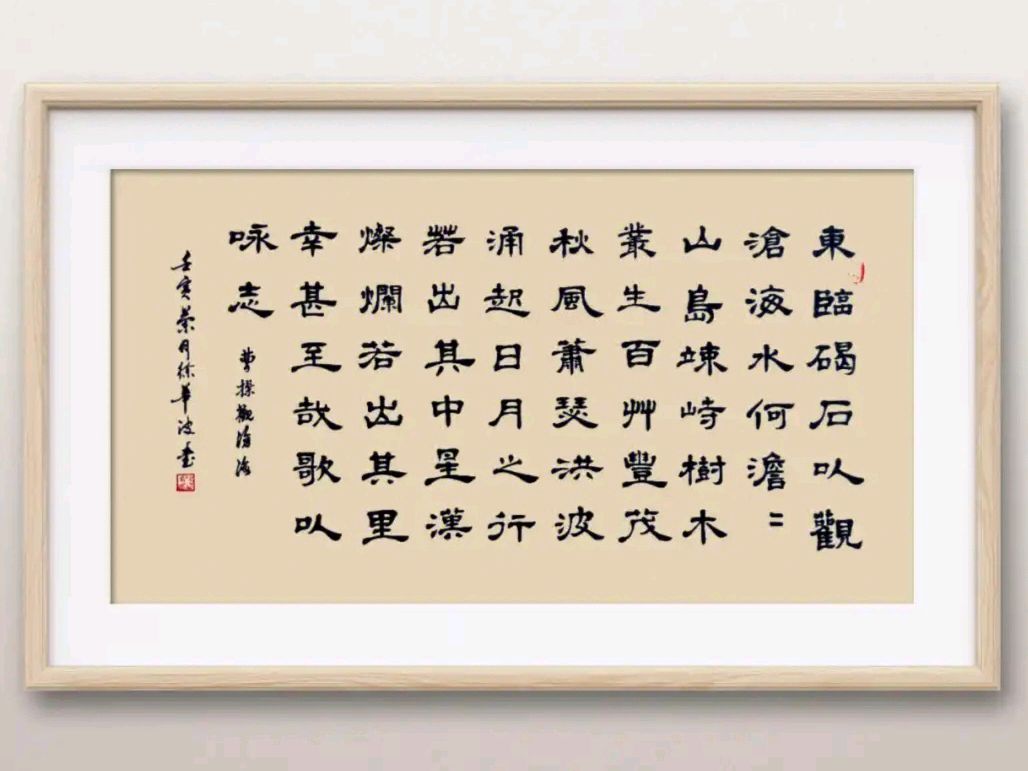 東臨碣石㕥觀
滄海水何澹〻
山島竦峙樹木
叢生百艸豐茂
秋風蕭瑟洪波
涌起日月之行
若出其中星漢
燦爛若出其里
幸甚至哉歌㕥
咏志
曹操觀滄海
壬寅 月徐華波書